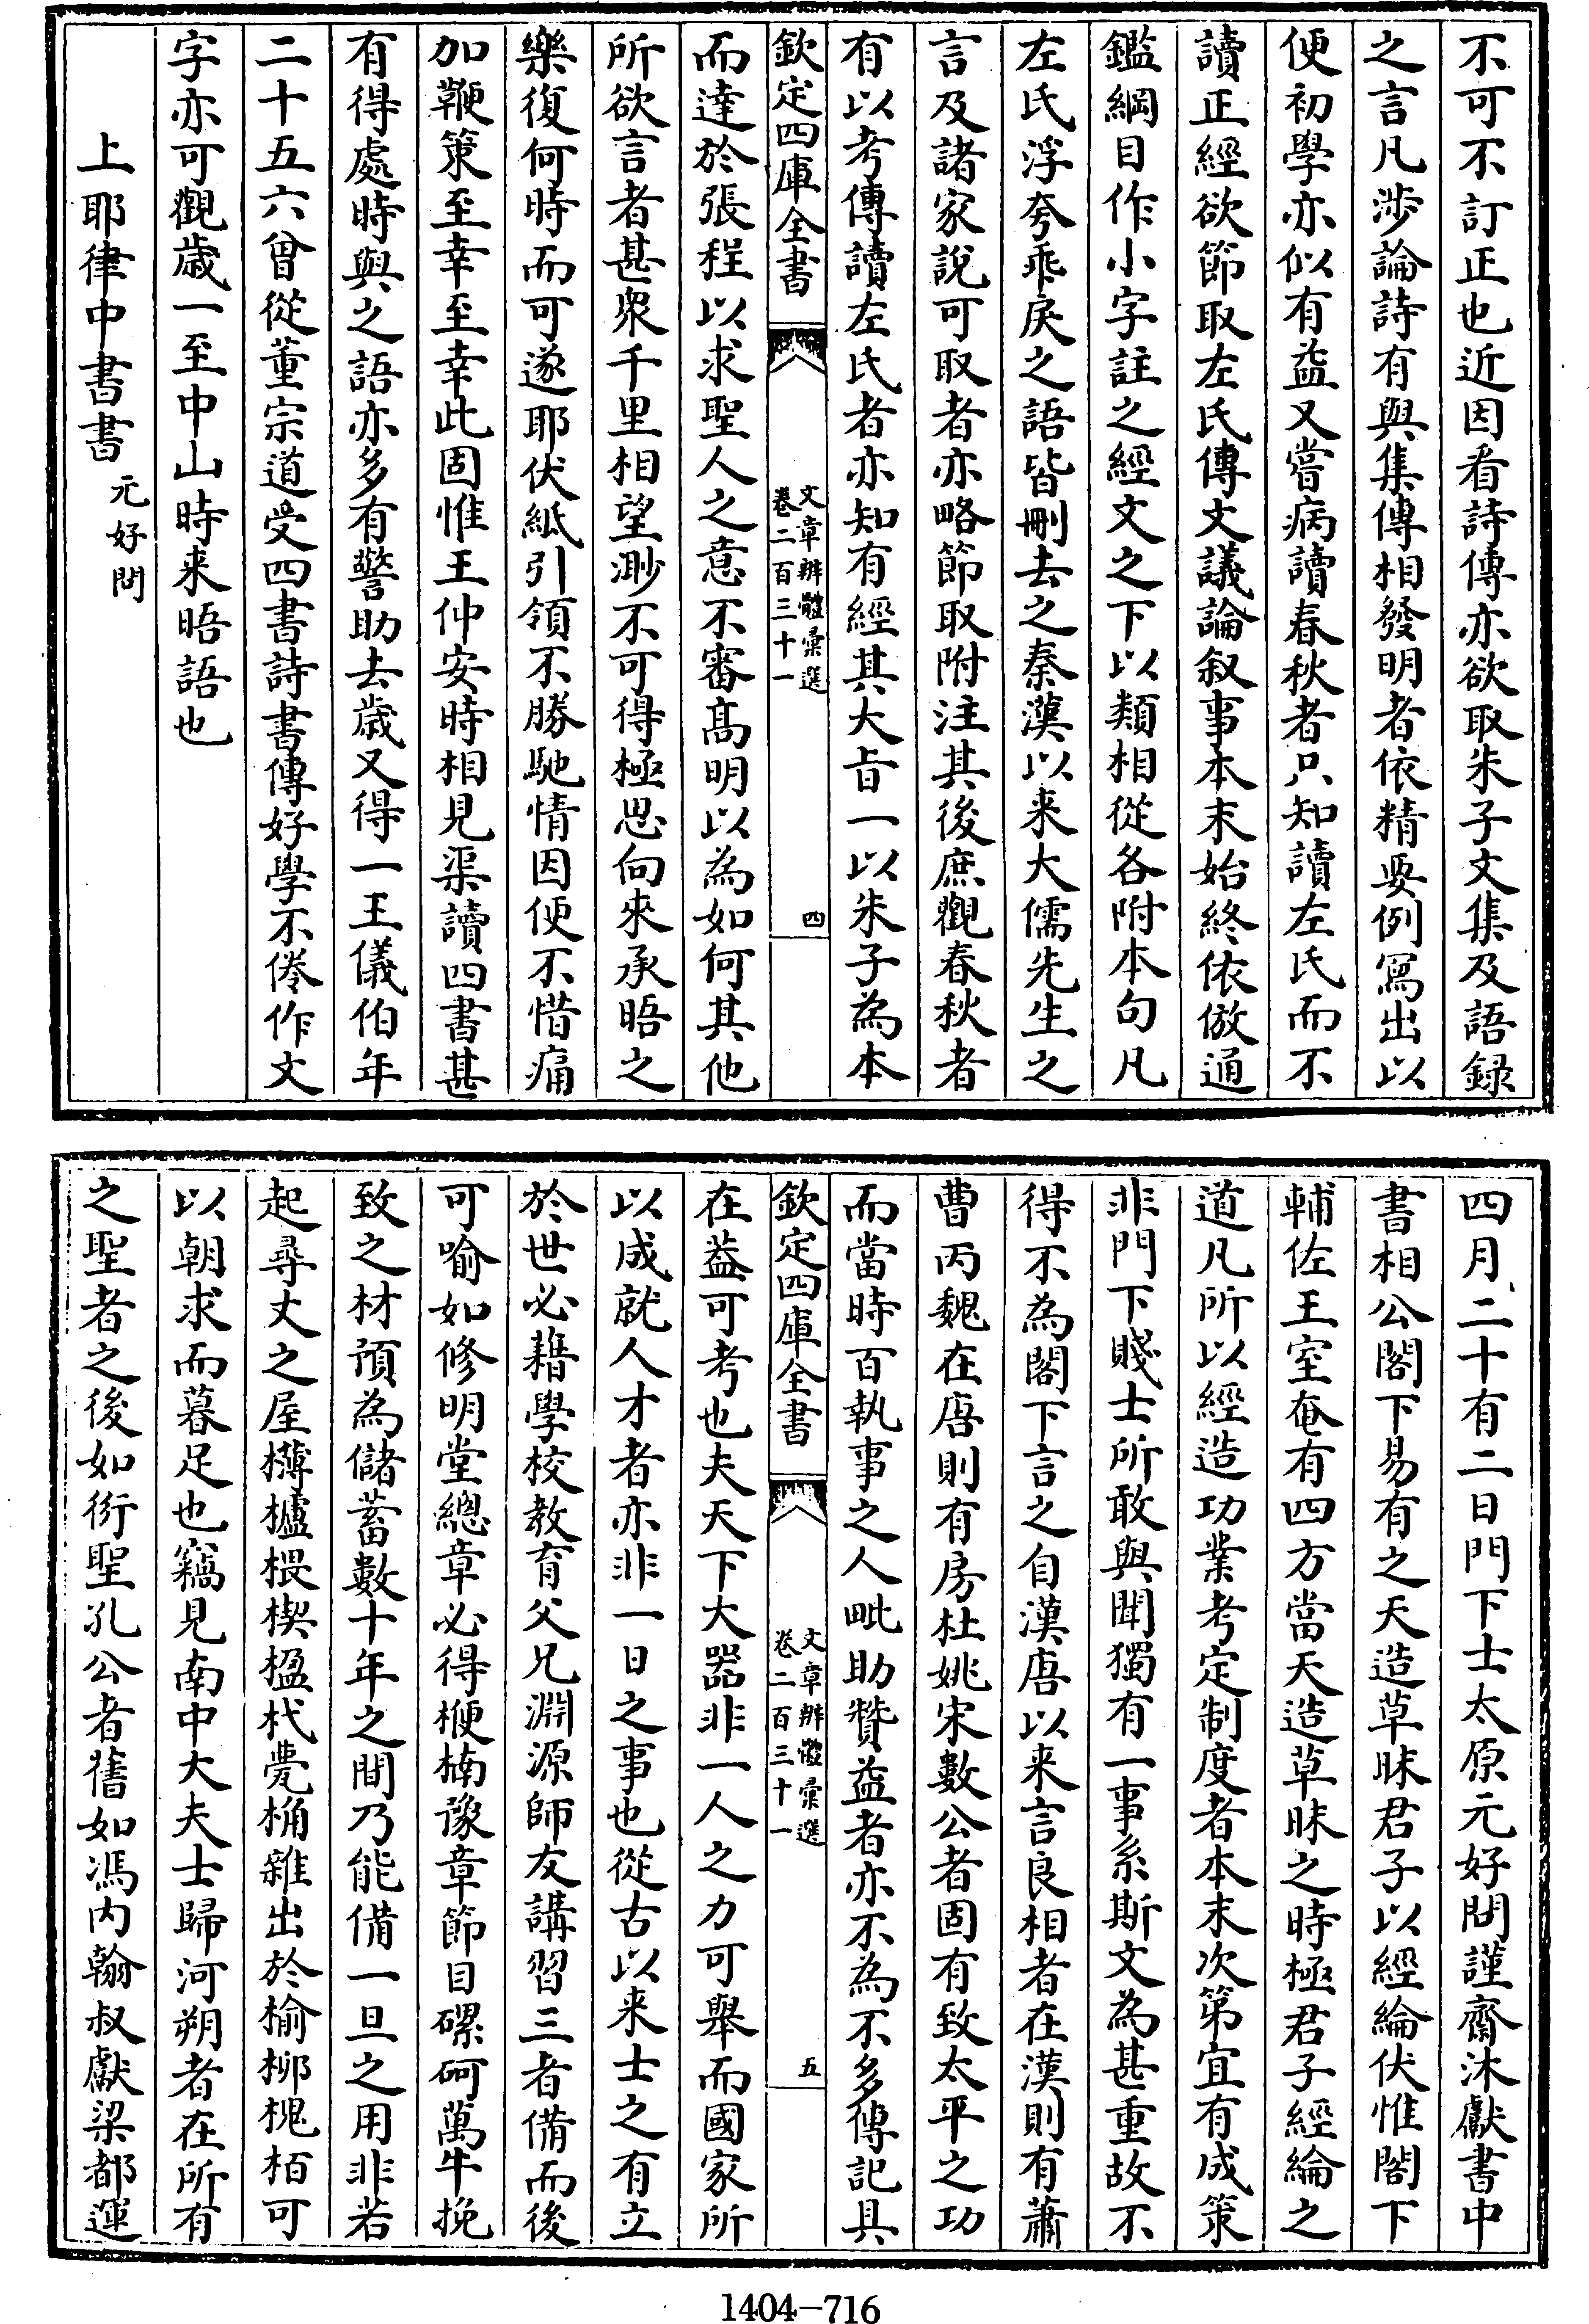 不可不訂正也近因看詩傳亦欲取朱子文集及語録
之言凡渉論詩有與集傳相發明者依精要例寫出以
便初學亦似有益又嘗病讀春秋者只知讀左氏而不
讀正經欲節取左氏傳文議論叙事本末始終依倣通
鑑綱目作小字註之經文之下以類相從各附本句凡
左氏浮夸乖戾之語皆刪去之秦漢以来大儒先生之
言及諸家說可取者亦略節取附注其後庶觀春秋者
有以考傳讀左氏者亦知有經其大旨一以朱子為本
欽定四庫全書
文章辨體彙選
卷二百三十一
四
而達於張程以求聖人之意不審髙明以為如何其他
所欲言者甚衆千里相望渺不可得極思向來承晤之
樂復何時而可遂耶伏紙引領不勝馳情因便不惜痛
加鞭策至幸至幸此固惟王仲安時相見渠讀四書甚
有得處時與之語亦多有警助去歲又得一王儀伯年
二十五六曾從董宗道受四書詩書傳好學不倦作文
字亦可觀歲一至中山時来晤語也
上耶律中書書
元好問
四月二十有二日門下士太原元好問謹齋沐獻書中
書相公閣下易有之天造草昧君子以經綸伏惟閣下
輔佐王室奄有四方當天造草昧之時極君子經綸之
道凡所以經造功業考定制度者本末次第宜有成策
非門下賤士所敢與聞獨有一事系斯文為甚重故不
得不為閣下言之自漢唐以来言良相者在漢則有蕭
曹丙魏在唐則有房杜姚宋數公者固有致太平之功
而當時百執事之人毗助贊益者亦不為不多傳記具
欽定四庫全書
文章辨體彙選
卷二百三十一
五
在葢可考也夫天下大器非一人之力可舉而國家所
以成就人才者亦非一日之事也從古以来士之有立
於世必藉學校教育父兄淵源師友講習三者備而後
可喻如修明堂總章必得楩楠豫章節目磥砢萬牛挽
致之材預為儲蓄數十年之間乃能備一旦之用非若
起尋丈之屋欂櫨椳楔楹杙甍桷雜出於榆栁槐栢可
以朝求而暮足也竊見南中大夫士歸河朔者在所有
之聖者之後如衍聖孔公耆舊如馮内翰叔獻梁都運
1404—716